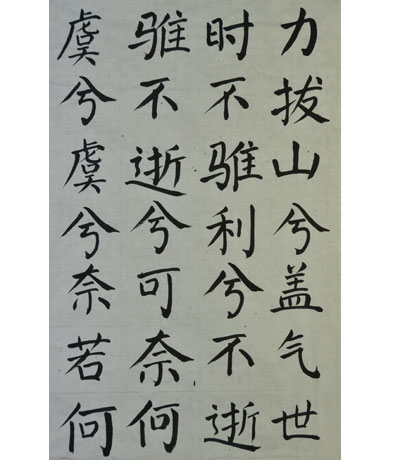 力拔山兮盖气世
时不骓利兮不逝
骓不逝兮可奈何
虞兮虞兮奈若何